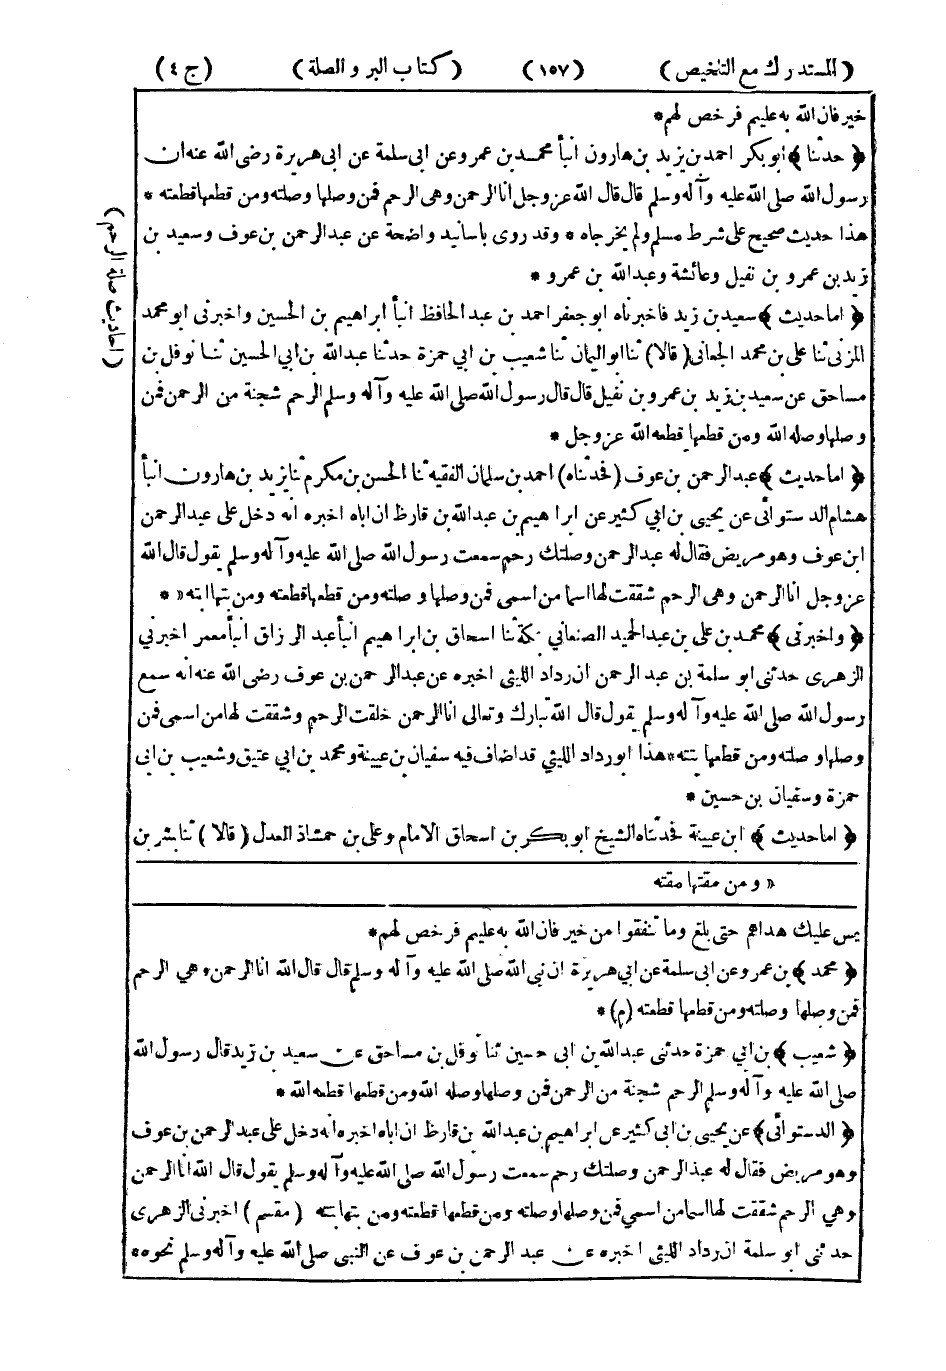 (المستدرك مع التلخيص) (١٥٧) (كتاب البر والصلة) (ج ٤)
خير فان الله به عليم فرخص لهم*
﴿ حدثنا ﴾ ابو بكر احمد بن يزيد بن هارون انبأ محمد بن عمرو عن ابى سلمة عن ابى هريرة رضى الله عنه ان
رسول الله صلى الله عليه وآله وسلم قال قال الله عز وجل انا الرحمن وهى الرحم فمن وصلها وصلته ومن قطعها قطعته *
هذا حديث صحيح على شرط مسلم ولم يخرجاه * وقد روى باسانيد واضحة عن عبد الرحمن بن عوف وسعيد بن
زيد بن عمرو بن نفيل وعائشة وعبد الله بن عمرو *
﴿ اما حديث ﴾ سعيد بن زيد فاخبرناه ابو جعفر احمد بن عبد الحافظ انبأ ابراهيم بن الحسين واخبرنى ابو محمد
المزنى ثنا على بن محمد الجعانى (قالا) ثنا ابو اليمان ثنا شعيب بن ابي حمزة حدثنا عبد الله بن ابي الحسين ثنا نوفل بن
مساحق عن سعيد بن زيد بن عمرو بن نفيل قال قال رسول الله صلى الله عليه وآله وسلم الرحم شجنة من الرحمن فمن
وصلها وصله الله ومن قطعها قطعه الله عز وجل *
﴿ اما حديث ﴾ عبد الرحمن بن عوف (فحدثناه) احمد بن سلمان الفقيه ثنا الحسن بن مكرم ثنا يزيد بن هارون انبأ
هشام الدستوائى عن يحيى بن ابي كثير عن ابراهيم بن عبد الله بن قارظ ان اباه اخبره انه دخل على عبد الرحمن
ابن عوف وهو مريض فقال له عبد الرحمن وصلتك رحم سمعت رسول الله صلى الله عليه وآله وسلم يقول قال الله
عز وجل انا الرحمن وهى الرحم شققت لها اسما من اسمى فمن وصلها وصلته ومن قطعها قطعته ومن بتها ابته « *
﴿ واخبرنى ﴾ محمد بن على بن عبد الحميد الصنعاني بمكة ثنا اسحاق بن ابراهيم انبأ عبد الرزاق انبأ معمر اخبرني
الزهرى حدثنى ابو سلمة بن عبد الرحمن ان رداد الليثى اخبره عن عبد الرحمن بن عوف رضى الله عنه انه سمع
رسول الله صلى الله عليه وآله وسلم يقول قال الله تبارك وتعالى انا الرحمن خلقت الرحم وشققت لها من اسمى فمن
وصلها وصلته ومن قطعها بتته * هذا ابو رداد الليثي قد اضاف فيه سفيان بن عيينة ومحمد بن ابي عتيق وشعيب بن ابى
حمزة وسفيان بن حسين *
﴿ اما حديث ﴾ ابن عيينة فحدثناه الشيخ ابو بكر بن اسحاق الامام وعلى بن حمشاذ العدل (قالا) ثنا بشر بن
« ومن مقتها مقته
يس عليك هداهم حتى بلغ وما تنفقوا من خير فان الله به عليم فرخص لهم*
﴿ محمد ﴾ بن عمرو عن ابى سلمة عن ابي هريرة ان نبى الله صلى الله عليه وآله وسلم قال قال الله انا الرحمن وهي الرحم
فمن وصلها وصلته ومن قطعها قطعته (م) *
﴿ شعيب ﴾ بن ابي حمزة حدثنى عبد الله بن ابى حسين ثنا نوفل بن مساحق عن سعيد بن زيد قال رسول الله
صلى الله عليه وآله وسلم الرحم شجنة من الرحمن فمن وصلها وصله الله ومن قطعها قطعه الله *
﴿ الدستوائى ﴾ عن يحيى بن ابى كثير عن ابراهيم بن عبد الله بن قارظ ان اباه اخبره انه دخل على عبد الرحمن بن عوف
وهو مريض فقال له عبد الرحمن وصلتك رحم سمعت رسول الله صلى الله عليه وآله وسلم يقول قال الله انا الرحمن
وهي الرحم شققت لها اسما من اسمي فمن وصلها وصلته ومن قطعها قطعته ومن بتها بتته (مقسم) اخبرنى الزهرى
حدثنى ابو سلمة ان رداد الليثى اخبره عن عبد الرحمن بن عوف عن النبى صلى الله عليه وآله وسلم نحوه*
(احاديث صلة الرحم)